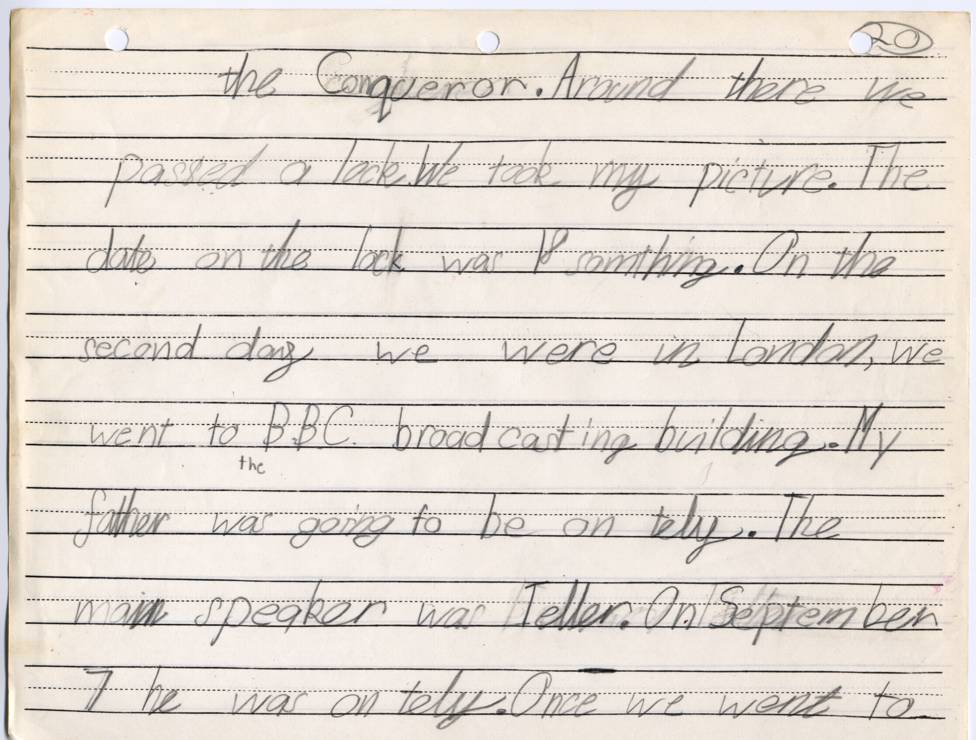 20
the Conqueror. Around there we
passed a lock. We took my picture. The
date on the lock was 18 somthing. On the
second day we were in London, we
went to BBC. broadcasting building. My
the
father was going to be on tely. The
main speaker was Teller. On September
7 he was on tely. Once we went to